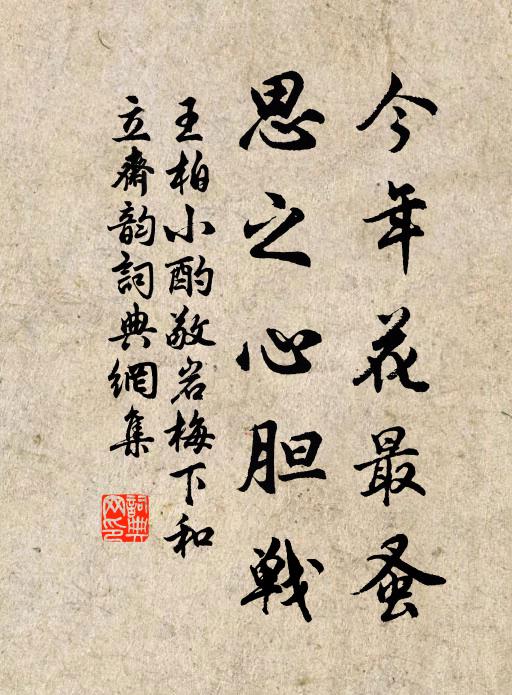 今年花最蚤
思之心胆戦
王柏小酌敬岩梅下和
立齋韵詞典網集
詞典
网印